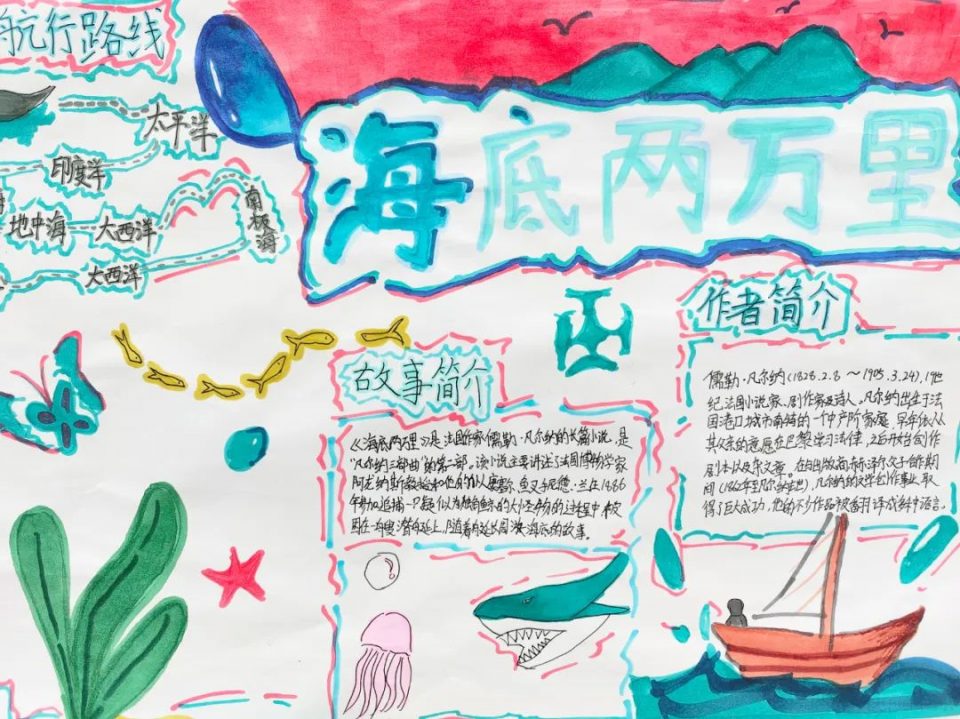 航行路线
太平洋
印度洋
地中海
大西洋
南极海
大西洋
海底两万里
故事简介
《海底两万里》是法国作家儒勒·凡尔纳的长篇小说，是
"凡尔纳三部曲"的第二部。该小说主要讲述了法国博物学家
阿龙纳斯教授和他的仆人康塞尔、鱼叉手尼德·兰在1866
年参加追捕一只疑似为独角鲸的大怪物的过程中被
困在一艘潜艇上，随着潜艇周游海底的故事。
作者简介
儒勒·凡尔纳(1828.2.8～1905.3.24)，19世
纪法国小说家、剧作家及诗人。凡尔纳出生于法
国港口城市南特的一个中产阶家庭，早年依从
其父亲的意愿在巴黎学习法律，之后开始创作
剧本以及杂文章。在与出版商赫泽尔父子合作期
间(1862年至凡尔纳去世)，凡尔纳的文学创作事业取
得了巨大成功，他的不少作品被翻译成多种语言。